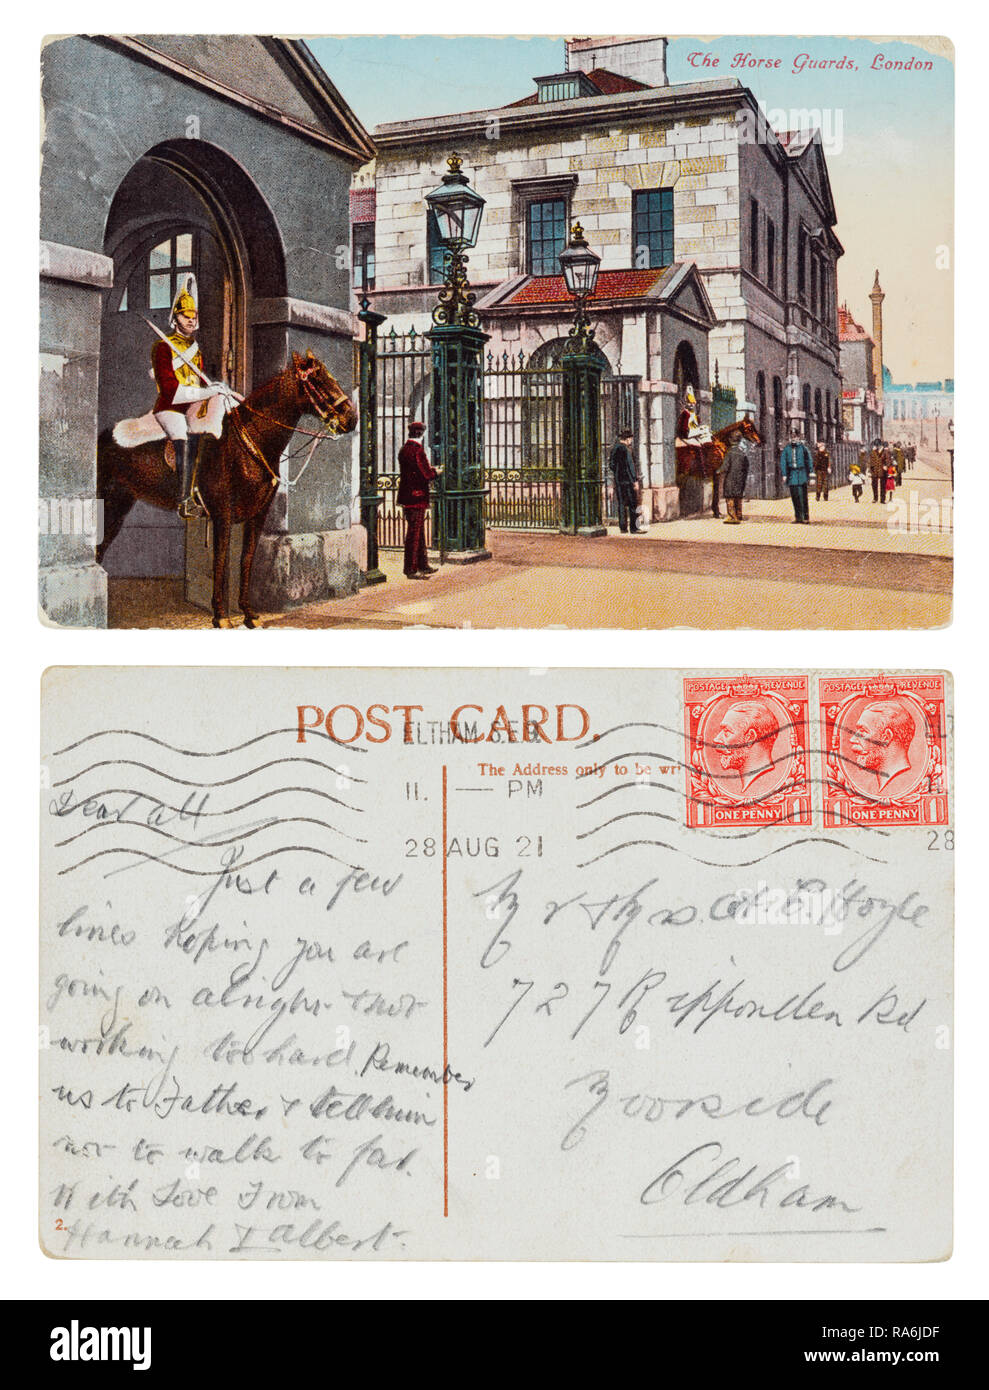 The Horse Guards, London
POST CARD.
The Address only to be wri
ELTHAM S.E.9.
11. — PM
28 AUG 21
POSTAGE REVENUE
1 ONE PENNY 1
POSTAGE REVENUE
1 ONE PENNY 1
EL
11
28
Dear all
Just a few
lines hoping you are
going on alright & not
working too hard. Remember
us to Father & tell him
not to walk to far.
With Love From
Hannah & Albert.
2.
Mr & Mrs E. Hoyle
727 Ripponden Rd
Moorside
Oldham
alamy
Image ID: RA6JDF
www.alamy.com